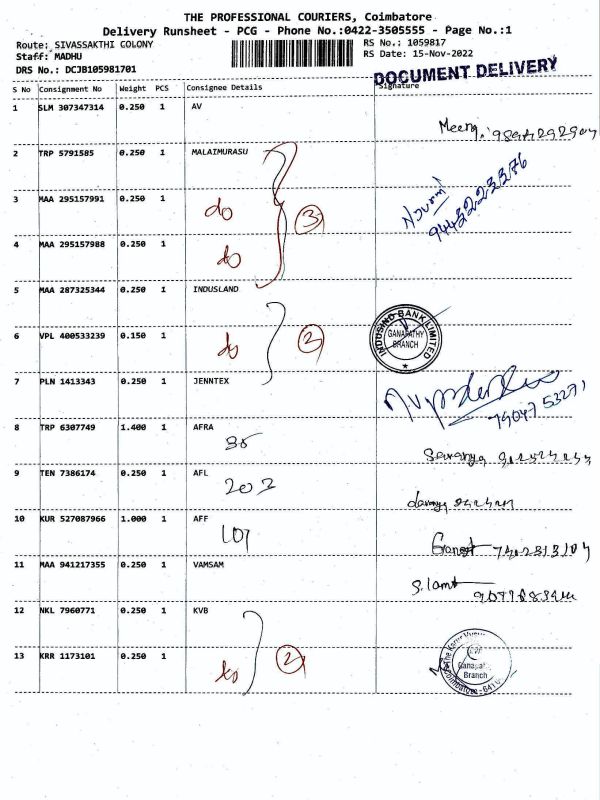 THE PROFESSIONAL COURIERS, Coimbatore
Delivery Runsheet - PCG - Phone No.:0422-3505555 - Page No.:1
Route: SIVASSAKTHI COLONY
Staff: MADHU
DRS No.: DCJB105981701
RS No.: 1059817
RS Date: 15-Nov-2022
DOCUMENT DELIVERY
S No Consignment No Weight PCS Consignee Details Signature
1 SLM 307347314 0.250 1 AV
Meena
2 TRP 5791585 0.250 1 MALAIMURASU
3 MAA 295157991 0.250 1 do 3
4 MAA 295157988 0.250 1 do
5 MAA 287325344 0.250 1 INDUSLAND
6 VPL 400533239 0.150 1 do 2
INDUSIND BANK LIMITED
GANAPATHY
BRANCH
7 PLN 1413343 0.250 1 JENNTEX
79047 53271
8 TRP 6307749 1.400 1 AFRA
Saranya
9 TEN 7386174 0.250 1 AFL
202
10 KUR 527087966 1.000 1 AFF
107
11 MAA 941217355 0.250 1 VAMSAM
12 NKL 7960771 0.250 1 KVB
13 KRR 1173101 0.250 1 do 2
Branch